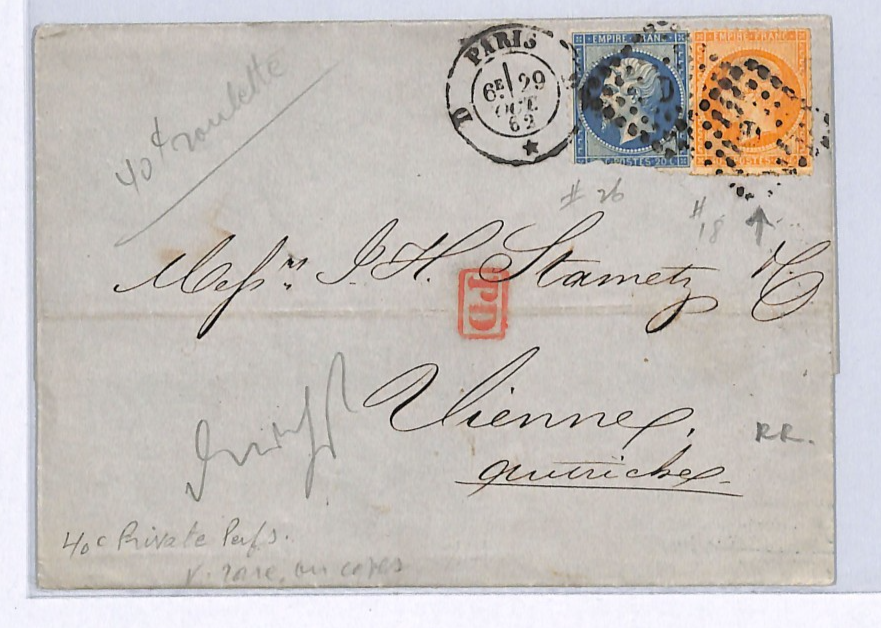 PARIS
6E 29
OCT
62
D
EMPIRE FRANC
POSTES 20 C
EMPIRE FRANC
40 c roulette
# 26
# 18
Messrs J. H. Stametz & C
PD
Vienne,
Autriche
RR.
40 c Private Perfs.
V. rare, on cover